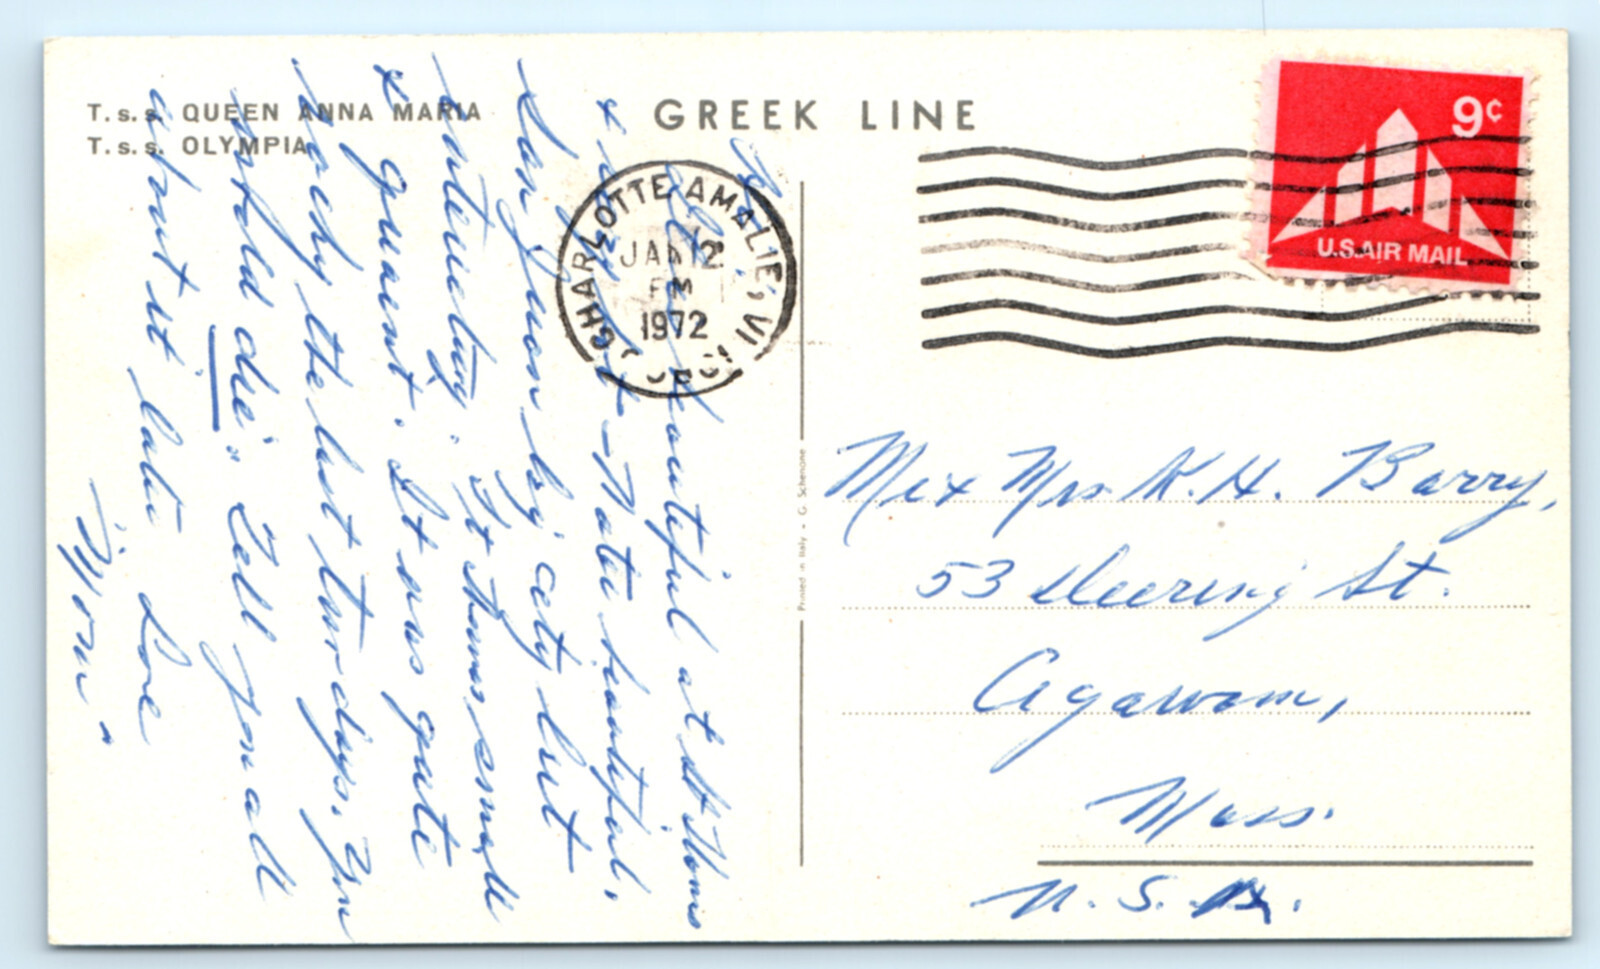 T.s.s. QUEEN ANNA MARIA
T.s.s. OLYMPIA
GREEK LINE
9¢
U.S. AIR MAIL
CHARLOTTE AMALIE, VI
JAN 12
PM
1972
beautiful at St Thomas
& – Water beautiful.
San Juan big city but
interesting. St Thomas small
& quaint. It was quite
rocky the last two days. You
should die". Tell you all
about it later Love
"Mom"
Printed in Italy - G. Schenone
Mr & Mrs K. H. Barry,
53 Deering St.
Agawam,
Mass.
U. S. A.